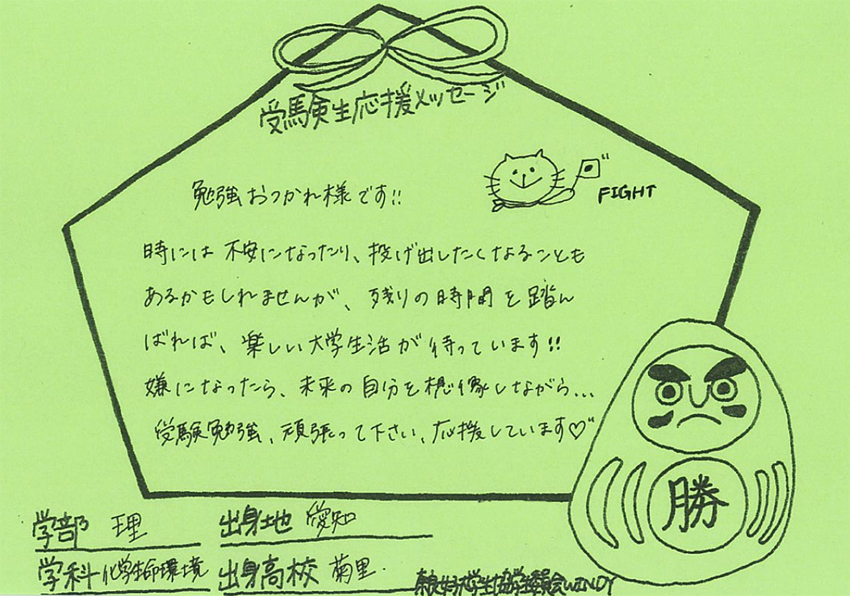 受験生応援メッセージ
勉強おつかれ様です!!
FIGHT
時には不安になったり、投げ出したくなることも
あるかもしれませんが、残りの時間を踏ん
ばれば、楽しい大学生活が待っています!!
嫌になったら、未来の自分を想像しながら...
受験勉強、頑張って下さい、応援しています♡"
勝
学部 理 出身地 愛知
学科 化学生命環境 出身高校 菊里.
奈良女子大学生協学生委員会WINDY